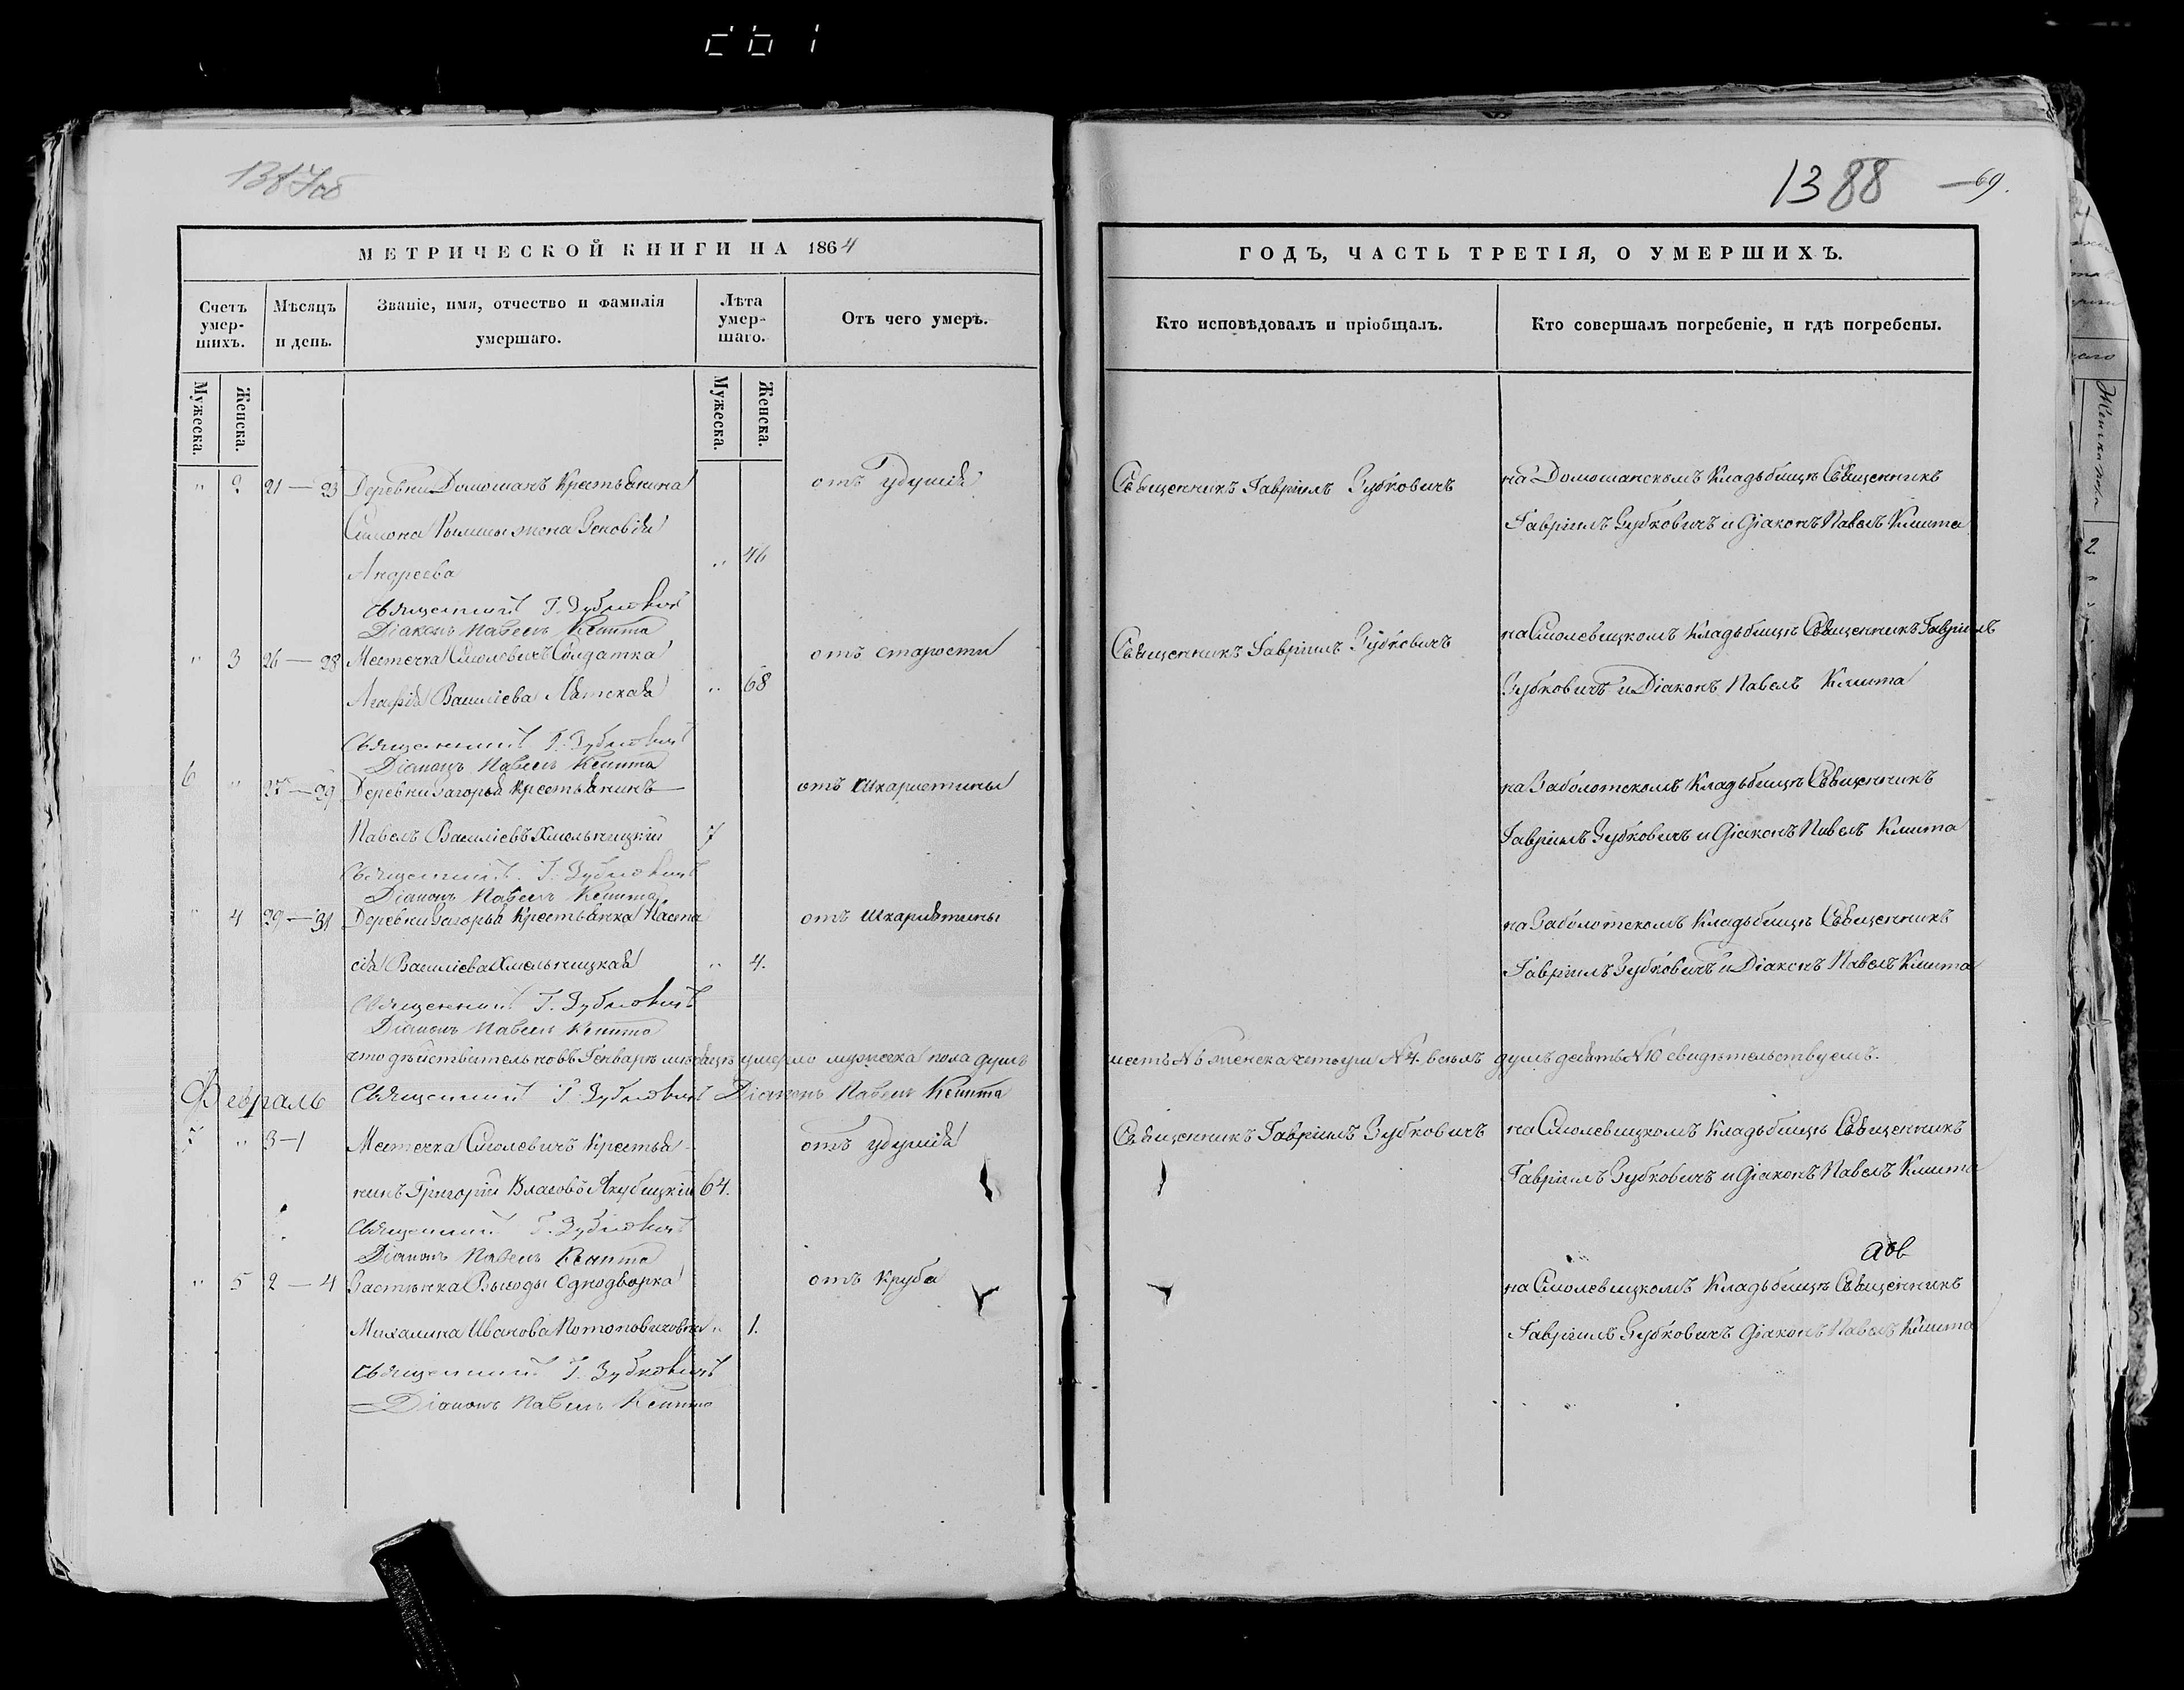 1387об
1388 — 69.
МЕТРИЧЕСКОЙ КНИГИ НА 1864
ГОДЪ, ЧАСТЬ ТРЕТІЯ, О УМЕРШИХЪ.
Счетъ умер-шихъ.
Мѣсяцъ и день.
Званіе, имя, отчество и фамилія умершаго.
Лѣта умер-шаго.
Отъ чего умеръ.
Кто исповѣдовалъ и пріобщалъ.
Кто совершалъ погребеніе, и гдѣ погребены.
Мужеска. Женска. Мужеска. Женска.
" 2 21 — 23 Деревни Домошанъ Крестьянина отъ удушія Священникъ Гавріилъ Зубковичъ на Домошанскомъ Кладьбищѣ Священникъ
Симона жена Зеновія Гавріилъ Зубковичъ и Діаконъ Павелъ Клишта
Андреева " 46
Священникъ Г. Зубковичъ
Діаконъ Павелъ Клишта
" 3 26 — 28 Местечка Смолевичъ Солдатка отъ старости Священникъ Гавріилъ Зубковичъ на Смолевицкомъ Кладьбищѣ Священникъ Гавріилъ
Агафія Василіева Лятская " 68 Зубковичъ и Діаконъ Павелъ Клишта
Священникъ Г. Зубковичъ
Діаконъ Павелъ Клишта
6 " 27 — 29 Деревни Загорья Крестьянинъ отъ шкарлетины на Заболотскомъ Кладьбищѣ Священникъ
Павелъ Василіевъ Хмельницкій 7 Гавріилъ Зубковичъ и Діаконъ Павелъ Клишта
Священникъ Г. Зубковичъ
Діаконъ Павелъ Клишта
" 4 29 — 31 Деревни Загорья Крестьянка Наста отъ шкарлятины на Заболотскомъ Кладьбищѣ Священникъ
сія Василіева Хмельницкая " 4. Гавріилъ Зубковичъ и Діаконъ Павелъ Клишта
Священникъ Г. Зубковичъ
Діаконъ Павелъ Клишта
что дѣйствительно въ Генварѣ мѣсяцѣ умерло мужеска пола душъ шесть №6 женска четыри №4. всѣхъ душъ десять №10 свидѣтельствуемъ.
Февраль Священникъ Г. Зубковичъ Діаконъ Павелъ Клишта
7 " 3—1 Местечка Смолевичъ Крестья- отъ удушія Священникъ Гавріилъ Зубковичъ на Смолевицкомъ Кладьбищѣ Священникъ
нинъ Григорій Власовъ Якубицкій 64. Гавріилъ Зубковичъ и Діаконъ Павелъ Клишта
Священникъ Г. Зубковичъ
Діаконъ Павелъ Клишта
" 5 2 — 4 Застѣнка Выгоды Однодворка отъ круба на Смолевицкомъ Кладьбищѣ Священникъ
Михалина Иванова " 1. Гавріилъ Зубковичъ Діаконъ Павелъ Клишта
Священникъ Г. Зубковичъ
Діаконъ Павелъ Клишта